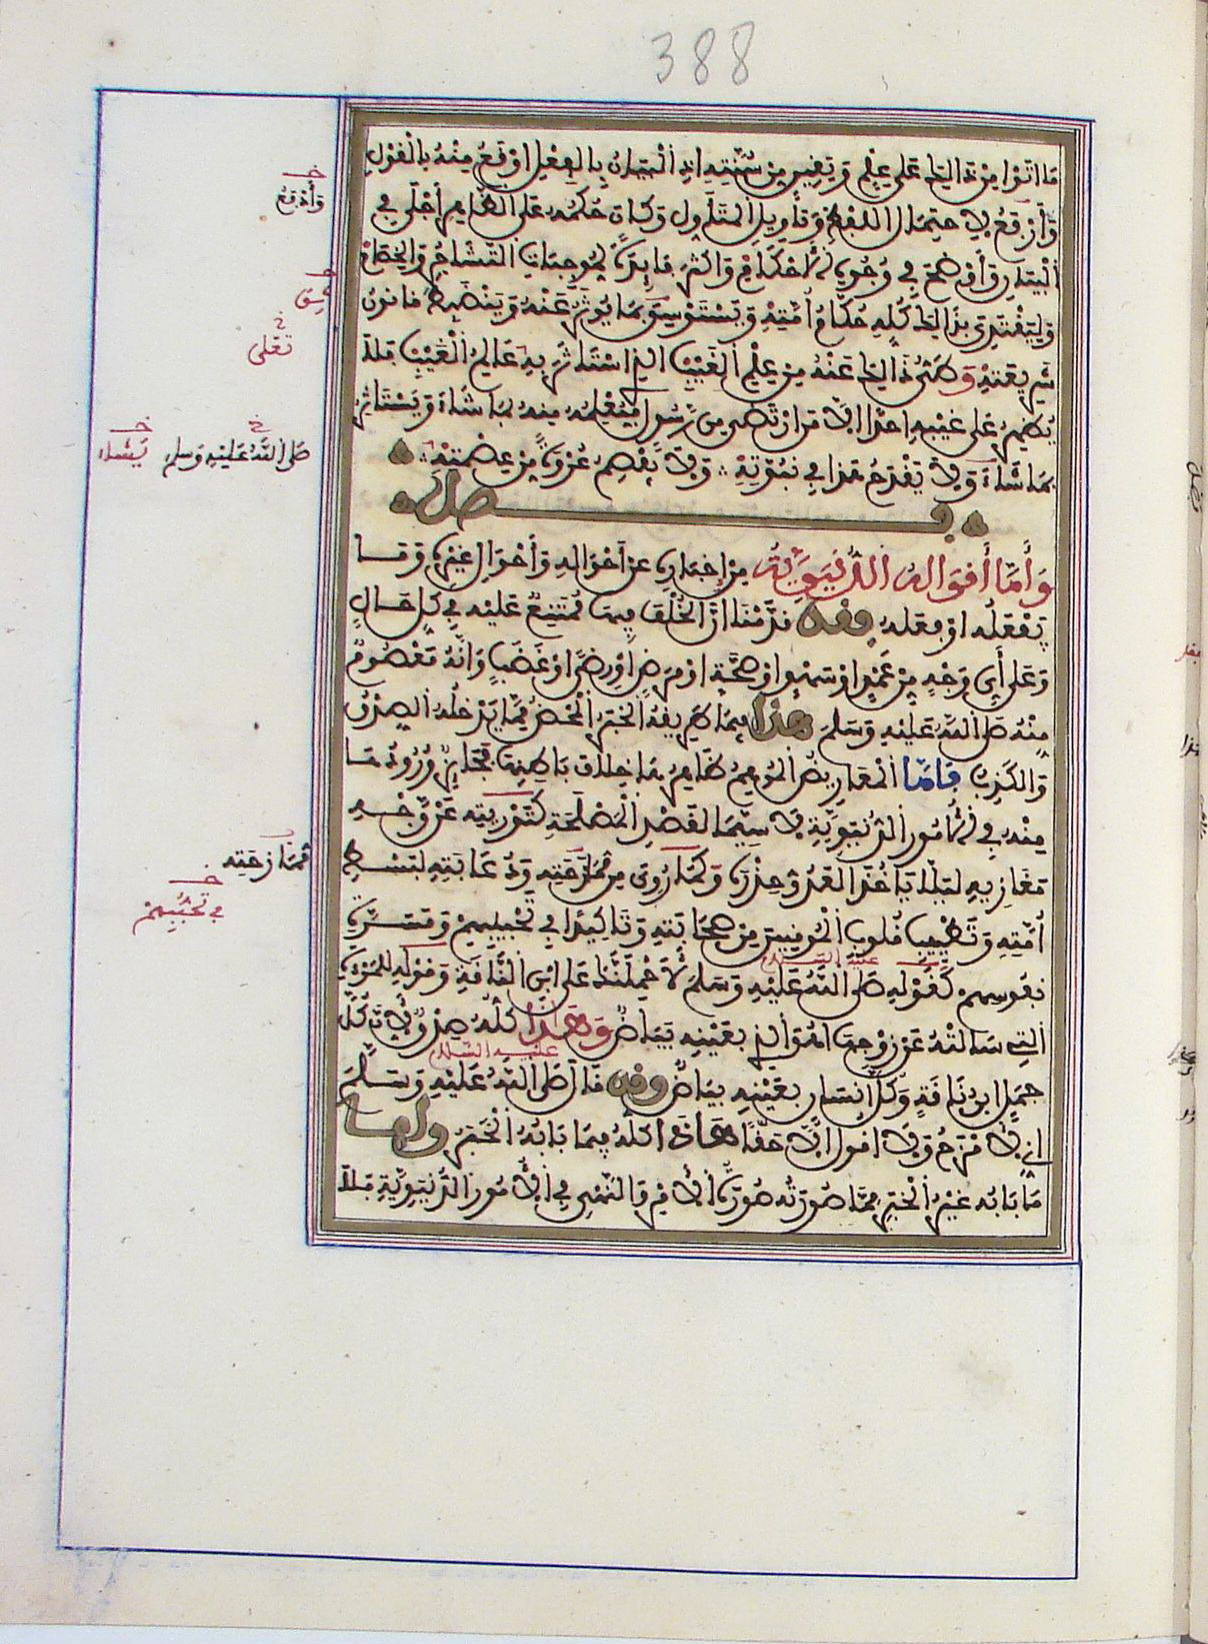 388
مَا اَتَوْا مِنْ ذَالِكَ عَلَى عِلْمٍ وَيَقِينٍ مِنْ سُنَّتِهِ اِذِ الْبَيَانُ بِالْفِعْلِ اَوْقَعُ مِنْهُ بِالْقَوْلِ
وَأَرْفَعُ لِاحْتِمَالِ اللَّفْظِ وَتَأْوِيلِ الْمُتَأَوِّلِ وَكَانَ حُكْمُهُ عَلَى الظَّاهِرِ أَجْلَى فِي
الْبَيَانِ وَأَوْضَحَ فِي وُجُوهِ الْأَحْكَامِ وَأَكْثَرَ فَائِدَةً لِمُوجِبَاتِ التَّشَاجُرِ وَالْخِصَامِ
وَلِيَقْتَدِيَ بِذَالِكَ كُلِّهِ حُكَّامُ أُمَّتِهِ وَيُسْتَوْسَقَ بِمَا يُوثَرُ عَنْهُ وَيَنْضَبِطَ قَانُونُ
شَرِيعَتِهِ وَطَيُّ ذَالِكَ عَنْهُ مِنْ عِلْمِ الْغَيْبِ الَّذِي اسْتَأْثَرَ بِهِ عَالِمُ الْغَيْبِ فَلَا
يُظْهِرُ عَلَى غَيْبِهِ اَحَدًا اِلَّا مَنِ ارْتَضَى مِن رَّسُولٍ فَيُعْلِمُهُ مِنْهُ بِمَا شَاءَ وَيَسْتَأْثِرُ
بِمَا شَاءَ وَلَا يَقْدَحُ هَذَا فِي نُبُوَّتِهِ وَلَا يَفْصِمُ عُرْوَةً مِنْ عِصْمَتِهِ
فصل
وَأَمَّا أَقْوَالُهُ الدُّنْيَوِيَّةُ مِنْ إِخْبَارِهِ عَنْ أَحْوَالِهِ وَأَحْوَالِ غَيْرِهِ وَمَا
يَفْعَلُهُ اَوْ فَعَلَهُ فَقَدْ قَدَّمْنَا اَنَّ الْخُلْفَ فِيهَا مُمْتَنِعٌ عَلَيْهِ فِي كُلِّ حَالٍ
وَعَلَى أَيِّ وَجْهٍ مِنْ عَمْدٍ اَوْ سَهْوٍ اَوْ صِحَّةٍ اَوْ مَرَضٍ اَوْ رِضًى اَوْ غَضَبٍ وَاَنَّهُ مَعْصُومٌ
مِنْهُ صَلَّى اللَّهُ عَلَيْهِ وَسَلَّمَ هذا فِيمَا طَرِيقُهُ الْخَبَرُ الْمَحْضُ مِمَّا يَدْخُلُهُ الصِّدْقُ
وَالْكَذِبُ فَأَمَّا الْمَعَارِيضُ الْمُوهِمُ ظَاهِرُهَا خِلَافَ بَاطِنِهَا فَجَائِزٌ وُرُودُهَا
مِنْهُ فِي الْأُمُورِ الدُّنْيَوِيَّةِ لَا سِيَّمَا لِقَصْدِ الْمَصْلَحَةِ كَتَوْرِيَتِهِ عَنْ وَجْهِ
مَغَازِيهِ لِيَلَّا يَاخُذَ الْعَدُوُّ حِذْرَهُ وَكَمَا رُوِيَ مِنْ مُمَازَحَتِهِ وَدُعَابَتِهِ لِبَسْطِ
أُمَّتِهِ وَتَطْيِيبِ قُلُوبِ الْمُومِنِينَ مِنْ صَحَابَتِهِ وَتَاكِيدًا فِي تَحْبِيبِهِمْ وَمَسَرَّةِ
نُفُوسِهِمْ كَقَوْلِهِ صَلَّى اللَّهُ عَلَيْهِ وَسَلَّمَ لَأَحْمِلَنَّكَ عَلَى ابْنِ النَّاقَةِ وَقَوْلِهِ لِلْمَرْأَةِ
الَّتِي سَأَلَتْهُ عَنْ زَوْجِهَا اَهُوَ الَّذِي بِعَيْنِهِ بَيَاضٌ وَهَذَا كُلُّهُ صِدْقٌ لِأَنَّ كُلَّ
جَمَلٍ ابْنُ نَاقَةٍ وَكُلَّ اِنْسَانٍ بِعَيْنِهِ بَيَاضٌ وقد قَالَ صَلَّى اللَّهُ عَلَيْهِ وَسَلَّمَ
اِنِّي لَأَمْزَحُ وَلَا اَقُولُ اِلَّا حَقًّا هَذَا كُلُّهُ فِيمَا بَابُهُ الْخَبَرُ وأما
مَا بَابُهُ غَيْرُ الْخَبَرِ مِمَّا صُورَتُهُ صُورَةُ الْأَمْرِ وَالنَّهْيِ فِي الْأُمُورِ الدُّنْيَوِيَّةِ فَلَا
وَأَدْفَعُ
تَعَلَى
صَلَّى اللَّهُ عَلَيْهِ وَسَلَّمَ
يَشَاءُ
مُمَازَحَتِه
فِي تَحَبُّبِهِمْ
عليه السلام
عليه السلام